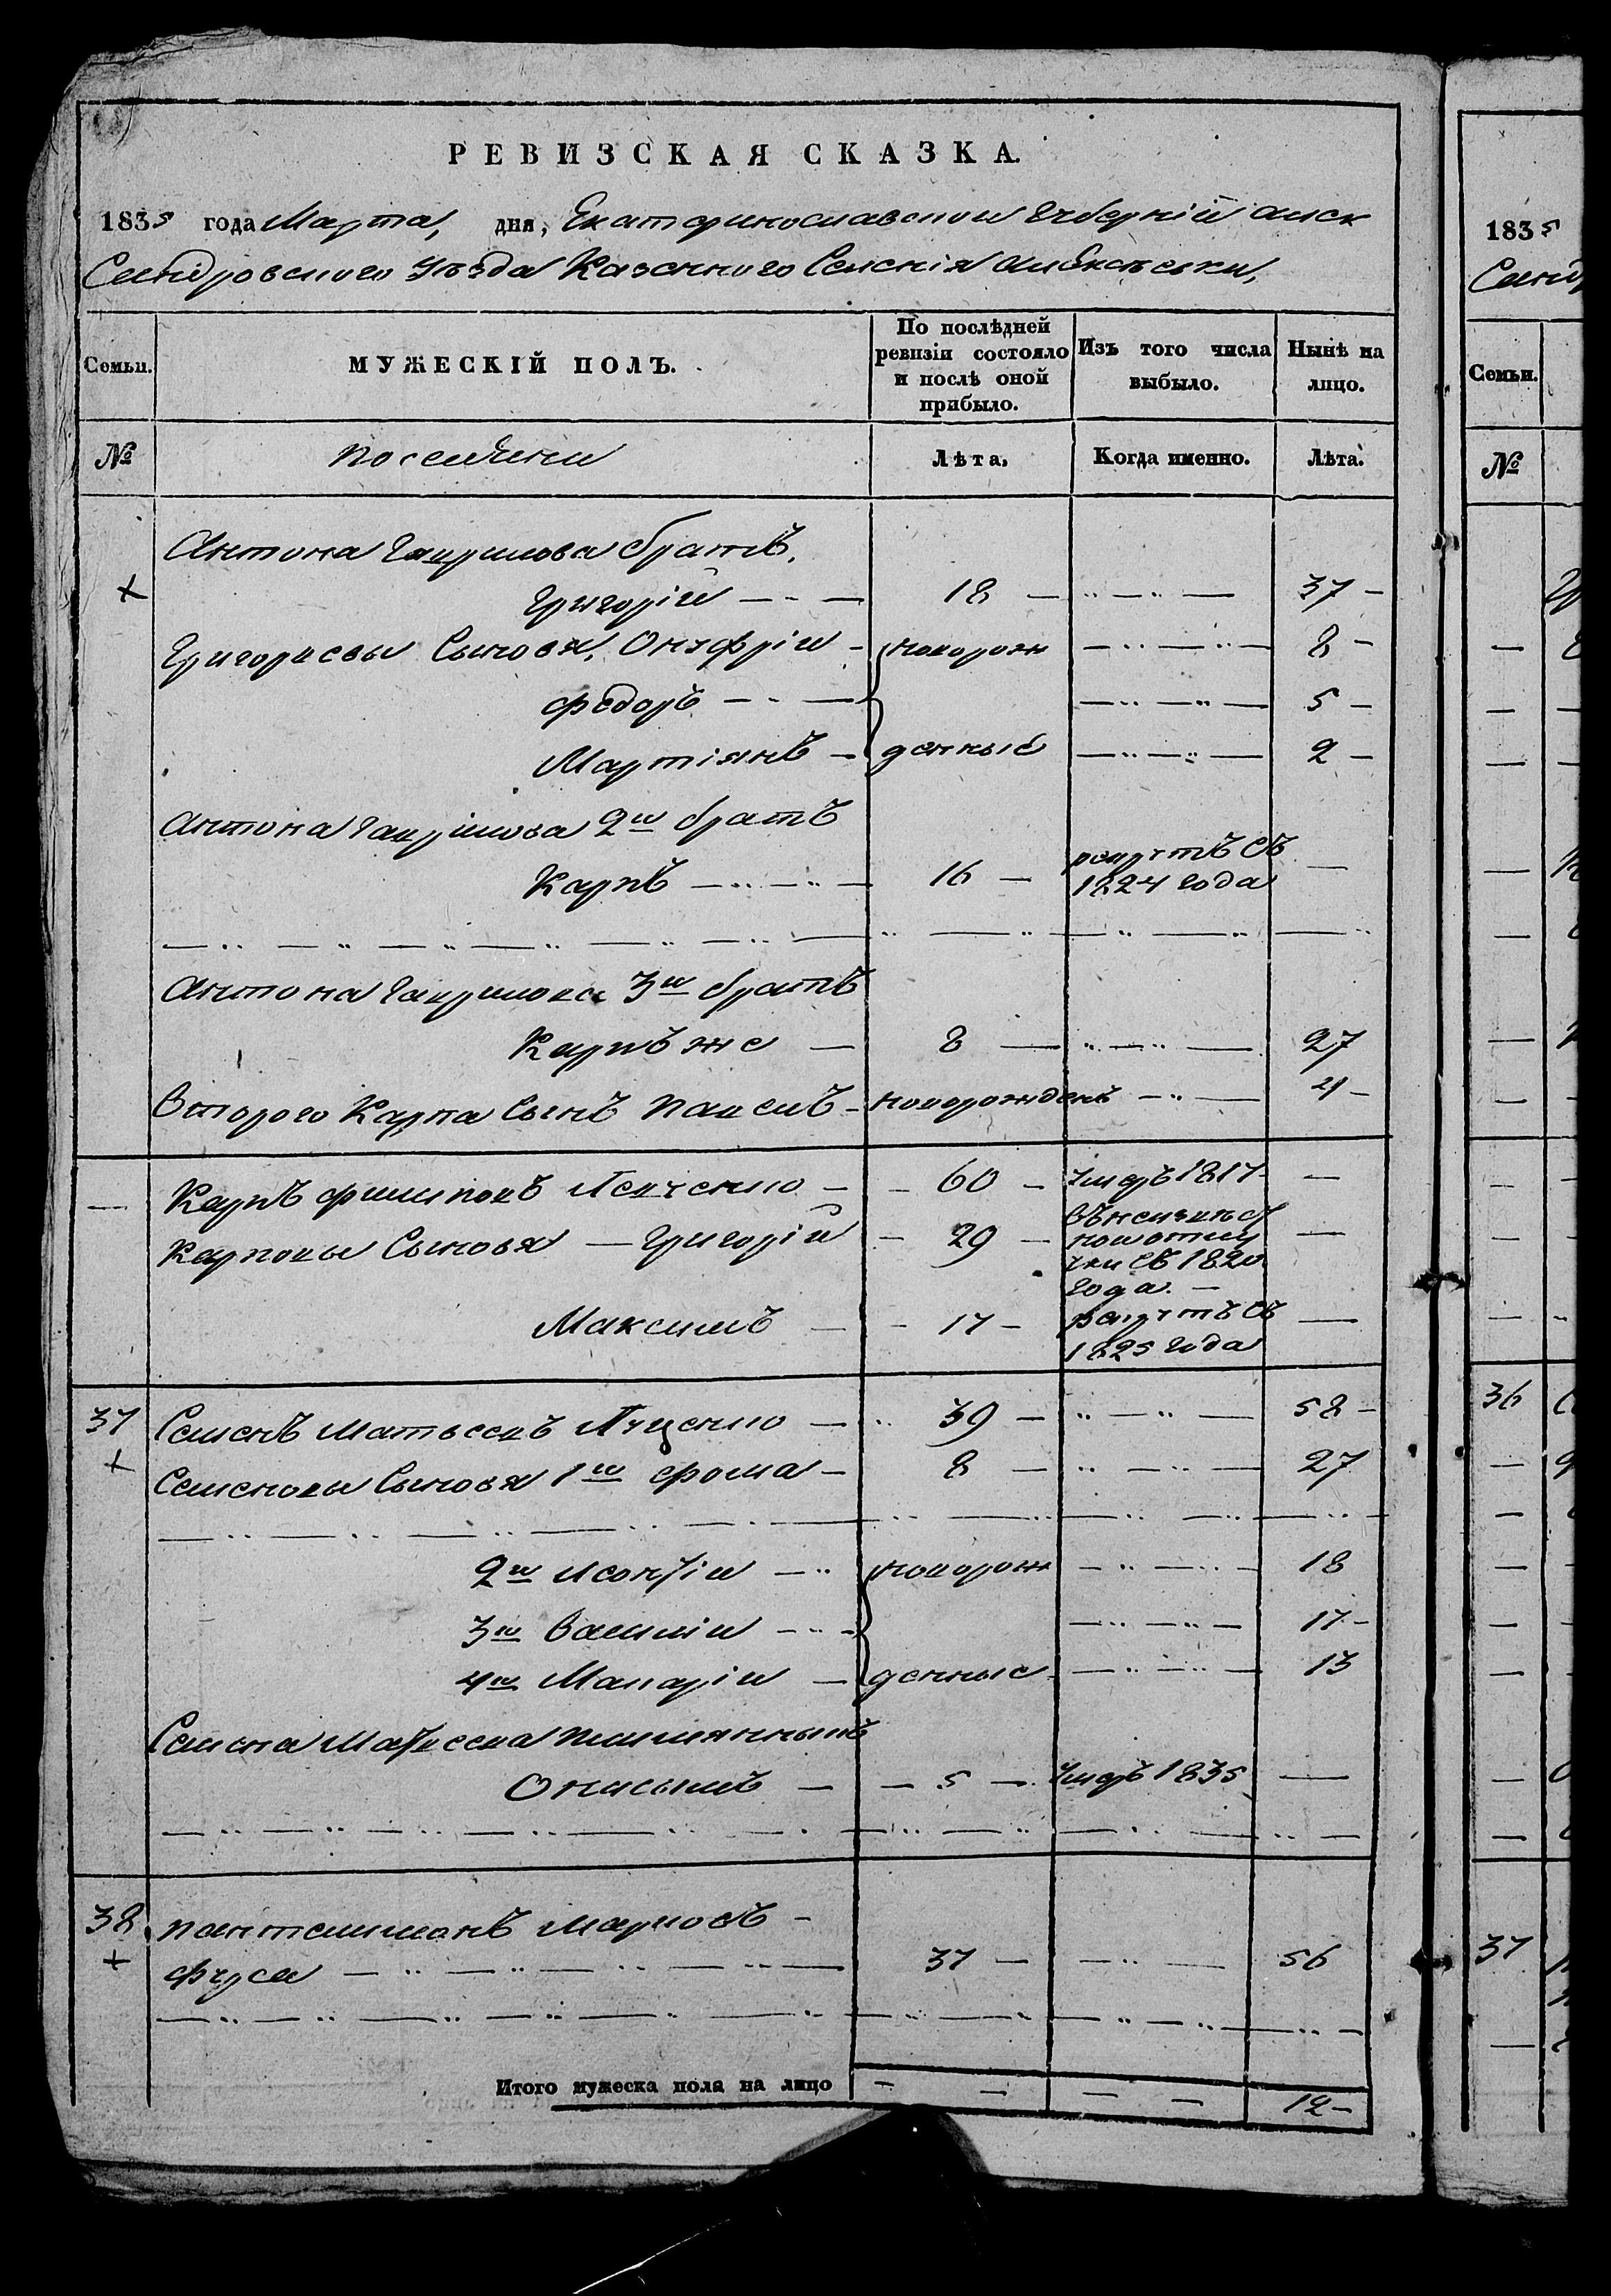 РЕВИЗСКАЯ СКАЗКА.
1835 года Марта, дня, Екатеринославской Губерніи Алек
Сандровского Уезда Казенного Селенія Алексеевки,
Семьи. МУЖЕСКІЙ ПОЛЪ. По послѣдней ревизіи состояло и послѣ оной прибыло. Изъ того числа выбыло. Нынѣ на лицо.
№ поселяни Лѣта. Когда именно. Лѣта.
Антона Гаврилова братъ,
+ Григорій 18 37
Григориевы Сыновя, Онуфрій новорож 8
Федоръ 5
Мартіянъ денные 2
Антона Гаврилова 2й братъ
Карпъ 16 рекрутъ съ 1824 года —
Антона Гаврилова 3й братъ
Карпъ же 8 27
Второго Карпа Сынъ Павелъ новорожденъ 4
— Карпъ Филиповъ Левченко 60 умеръ 1817 —
Карповы Сыновя Григорій 29 съ 1820 года. —
Максимъ 17 рекрутъ съ 1825 года —
37 Семенъ Матвеевъ Луценко 39 58
+ Семеновы Сыновя 1й Фома 8 27
2й Леонтій новорож 18
3й Василій 17
4й Макарій денные 13
Семена Матвеева племянныкъ
Онисымъ 5 умеръ 1835 —
38 Пантелимонъ Марковъ
+ Фурса 37 56
Итого мужеска пола на лицо 12
1835
Санд
Семьи.
№
36
37